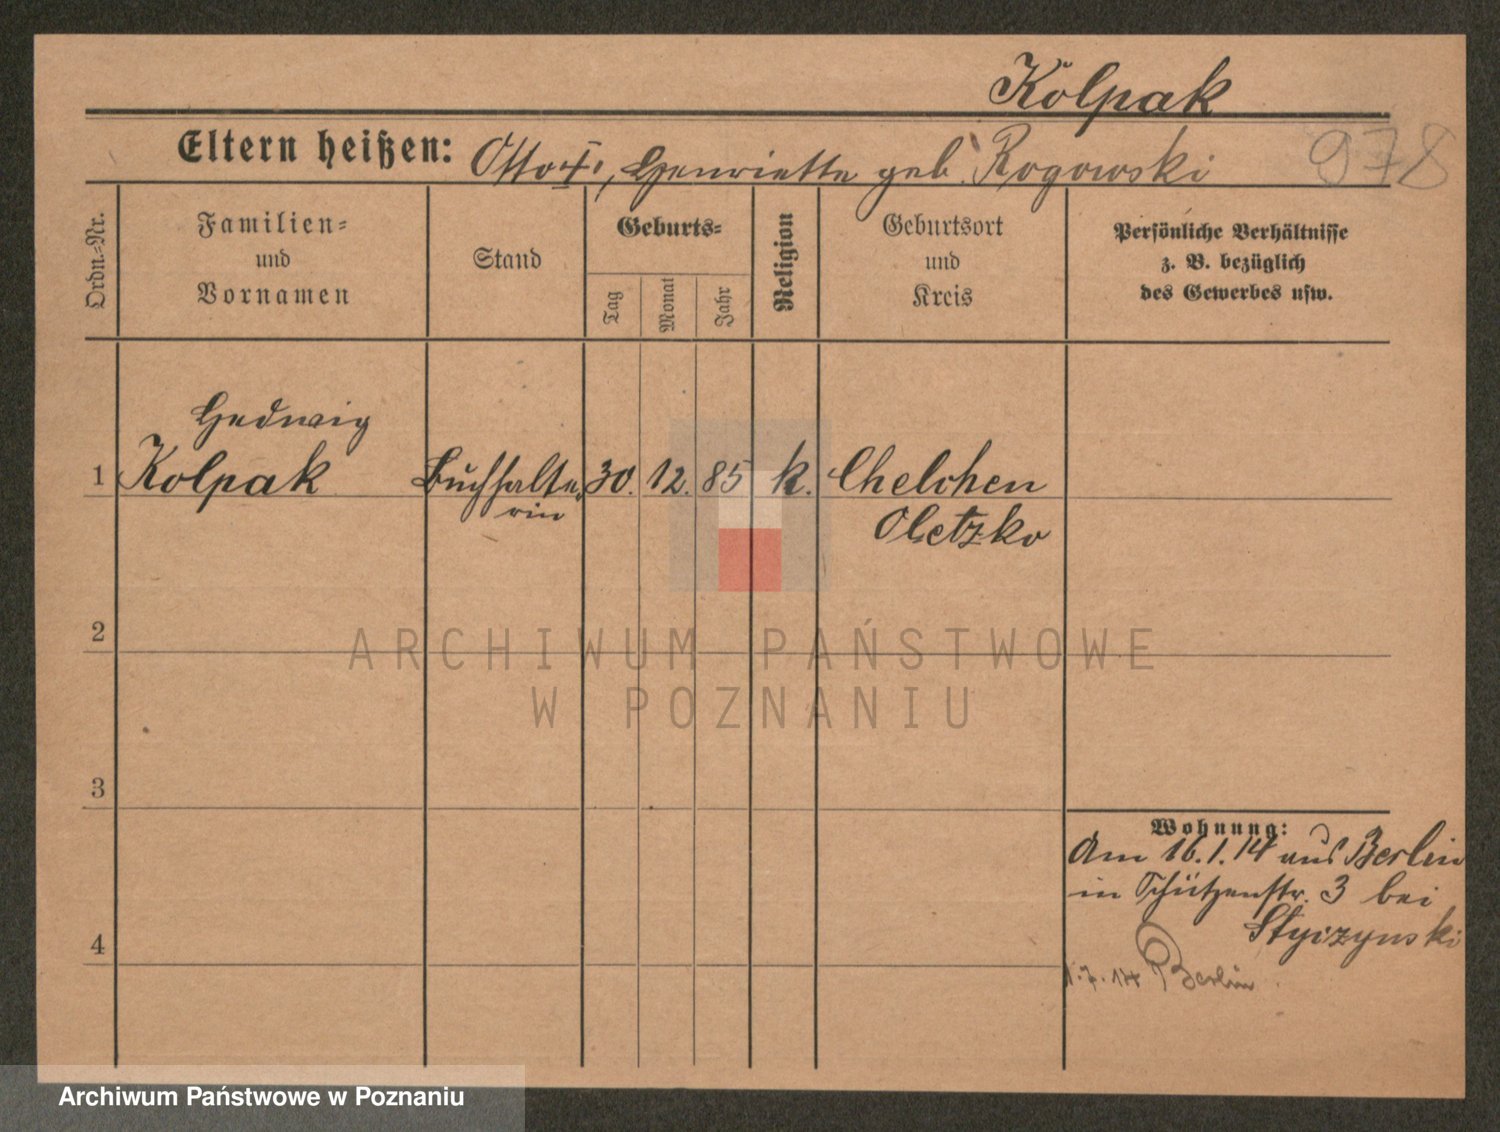 Kolpak
Eltern heißen: Otto †, Henriette geb. Rogowski
978
Ordn.-Nr.
Familien-
und
Vornamen
Stand
Geburts-
Tag
Monat
Jahr
Religion
Geburtsort
und
Kreis
Persönliche Verhältnisse
z. B. bezüglich
des Gewerbes usw.
Hedwig
1 Kolpak Buchhalte- 30. 12. 85 k. Chelchen
rin Oletzko
2
ARCHIWUM PAŃSTWOWE
W POZNANIU
3
Wohnung:
Am 16.1.14 aus Berlin
in Schützenstr. 3 bei
Styczynski
4
1.7.14 Berlin
Archiwum Państwowe w Poznaniu